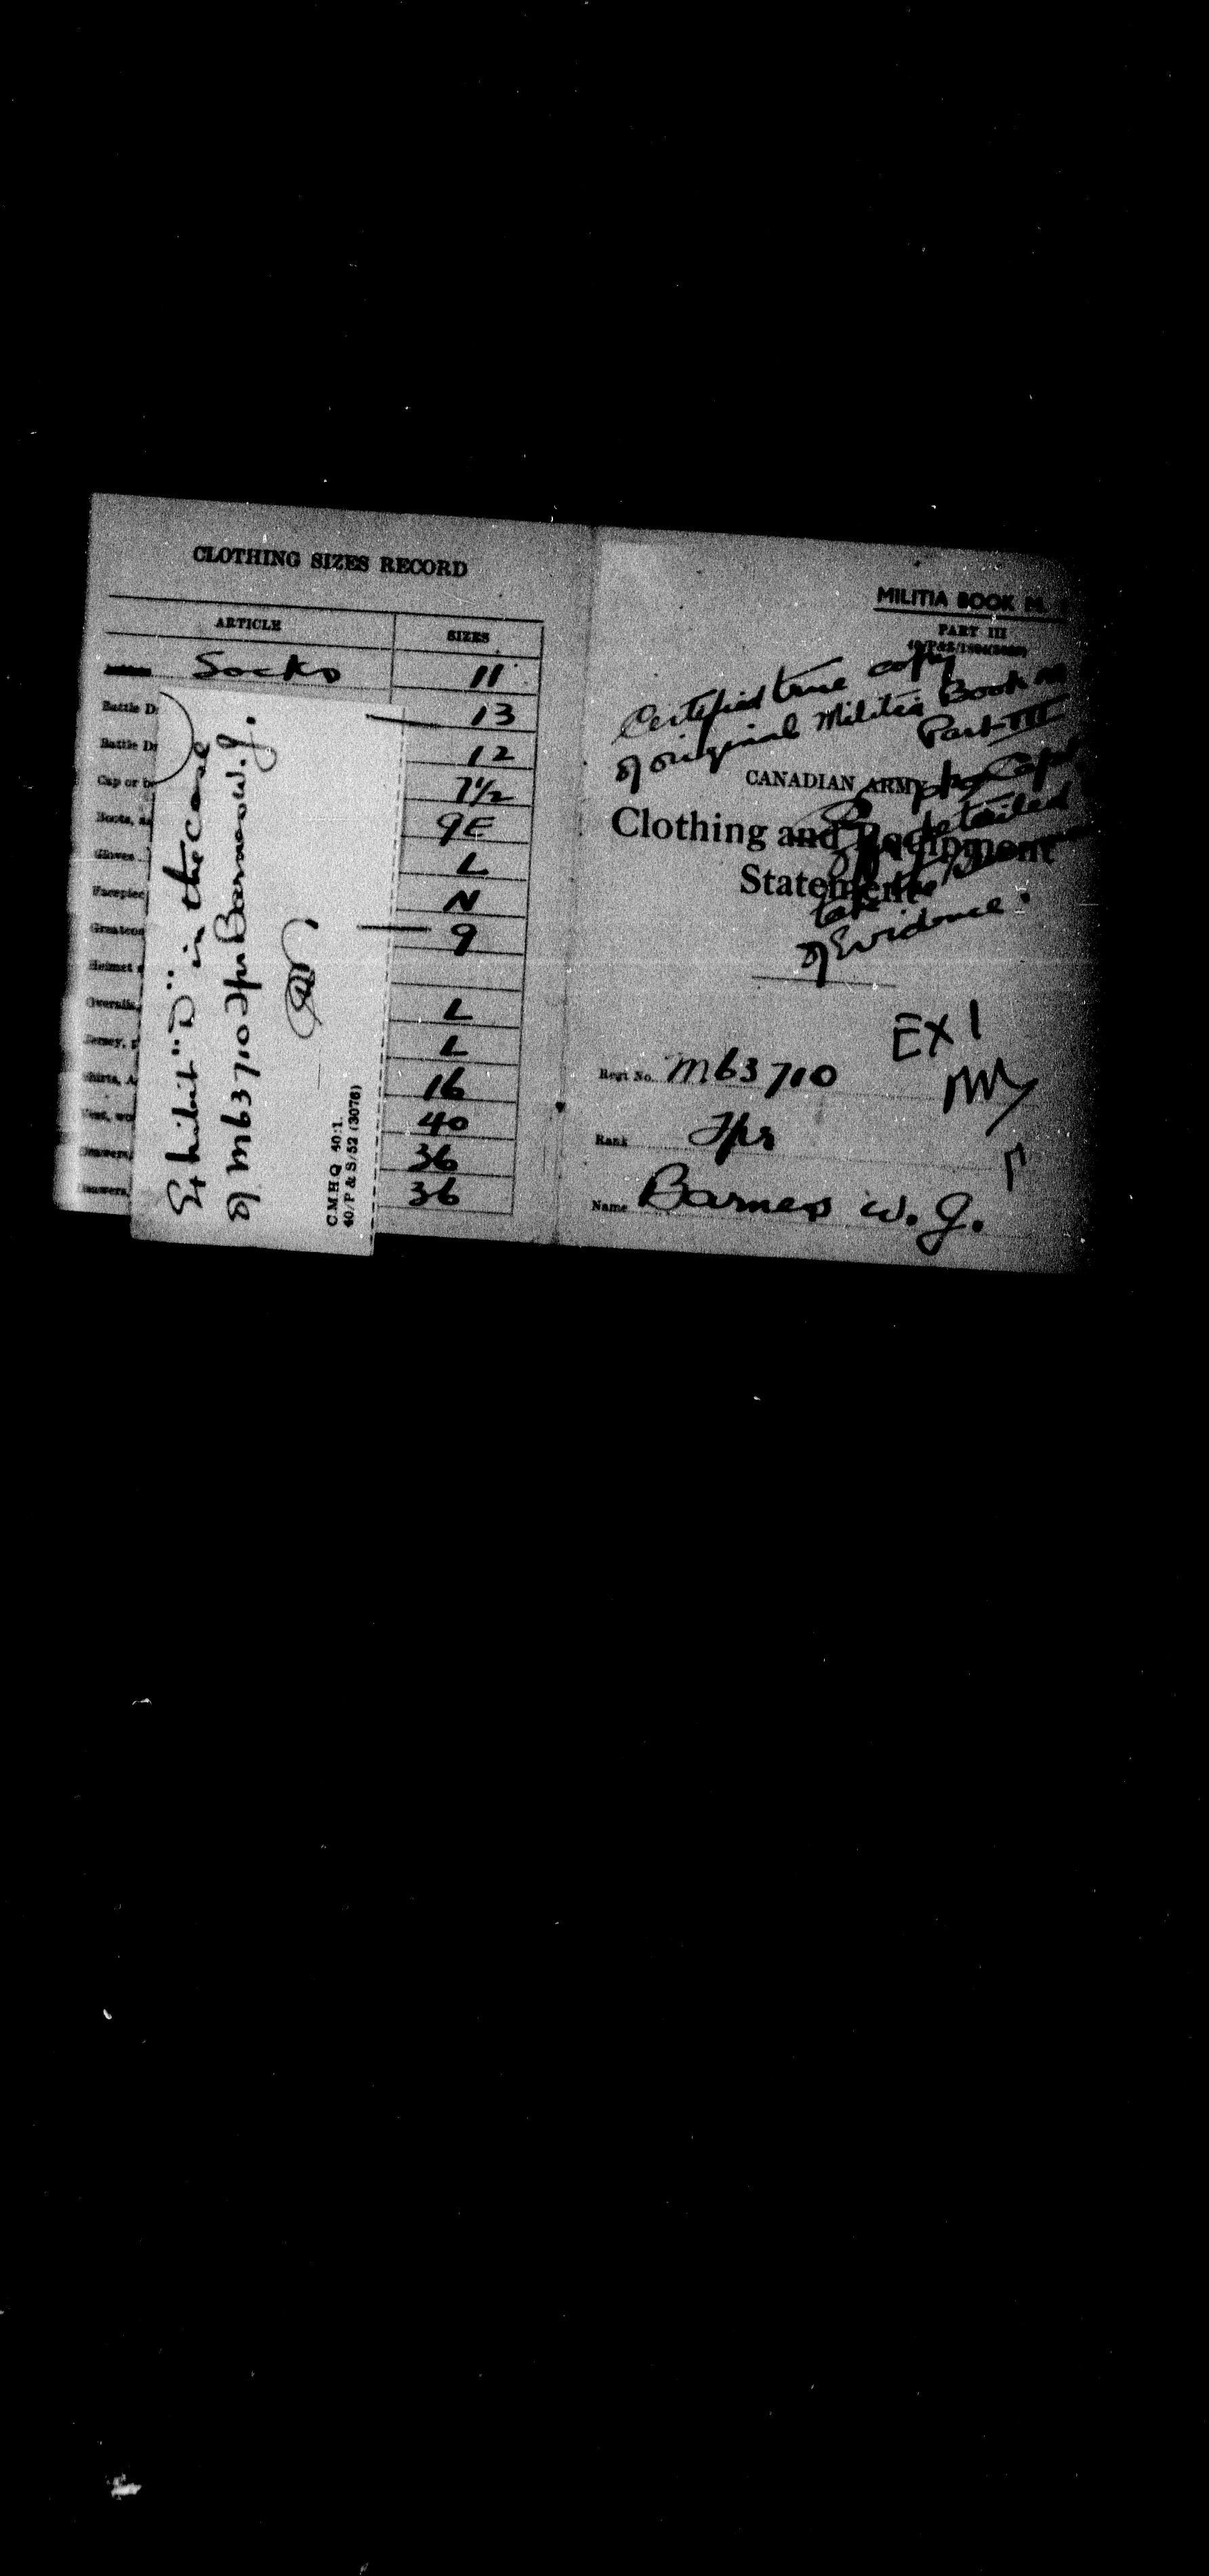 CLOTHING SIZES RECORD
ARTICLE SIZES
Socks 11
Battle D 13
Battle Dr 12
Cap or b 7 1/2
Boots, an 9E
Gloves L
Facepiec N
Greatcoa 9
Helmet
Overalls, L
Jersey, p L
Shirts, A 16
Vest, wo 40
Drawers, 36
Drawers, 36
Exhibit "D" in the case
of M63710 Tpr Barnes W. J.
C.M.H.Q. 40:1.
40/P & S/52 (3076)
MILITIA BOOK M.
PART III
Certified true copy
of original Militia Book M
Part III
CANADIAN ARMY
Capt
Clothing and Equipment
detailed
Statement
take the
of Evidence.
EX 1
Regt No. M63710
Rank Tpr
Name Barnes W. J.